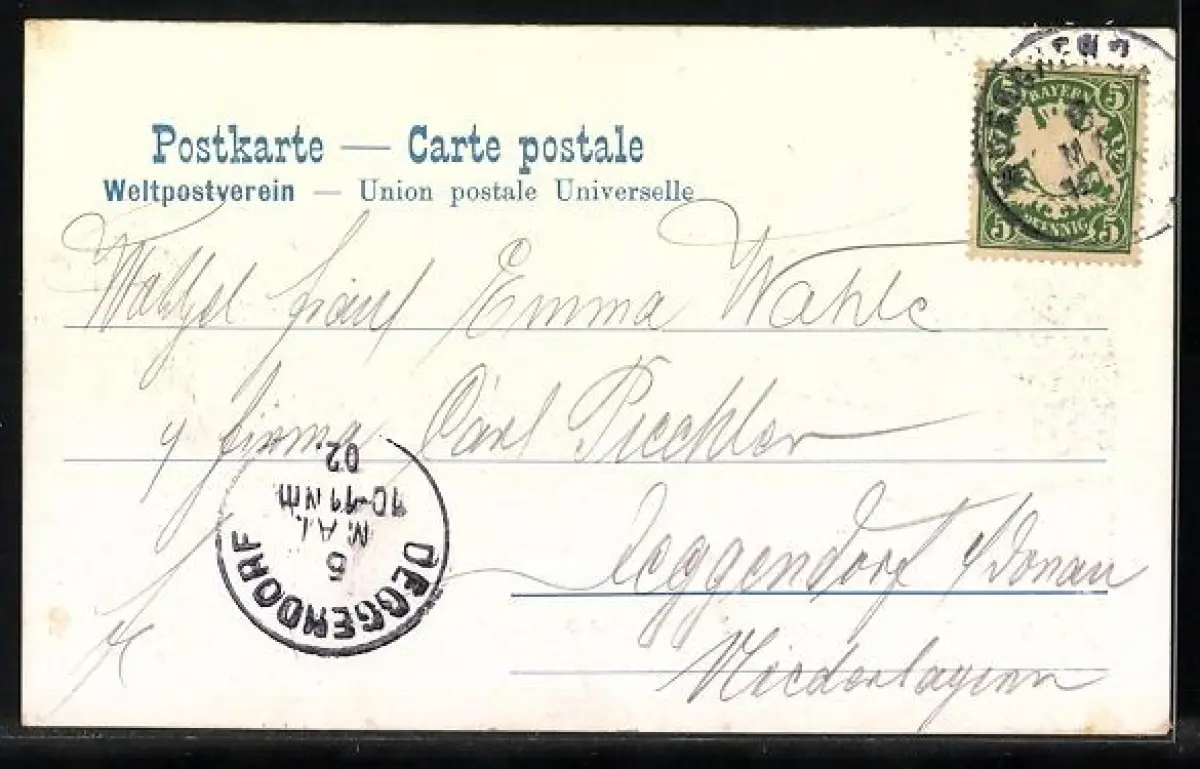 Postkarte — Carte postale
Weltpostverein — Union postale Universelle
BAYERN
5 5
5 PFENNIG 5
Emma Wahle
firma Carl
Deggendorf a/Donau
Niederbayern
DEGGENDORF
5
MAI.
10-11 Nm
02.